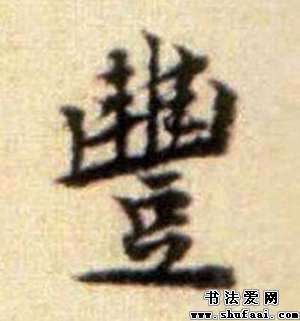 豐
书法爱网
www.shufaai.com